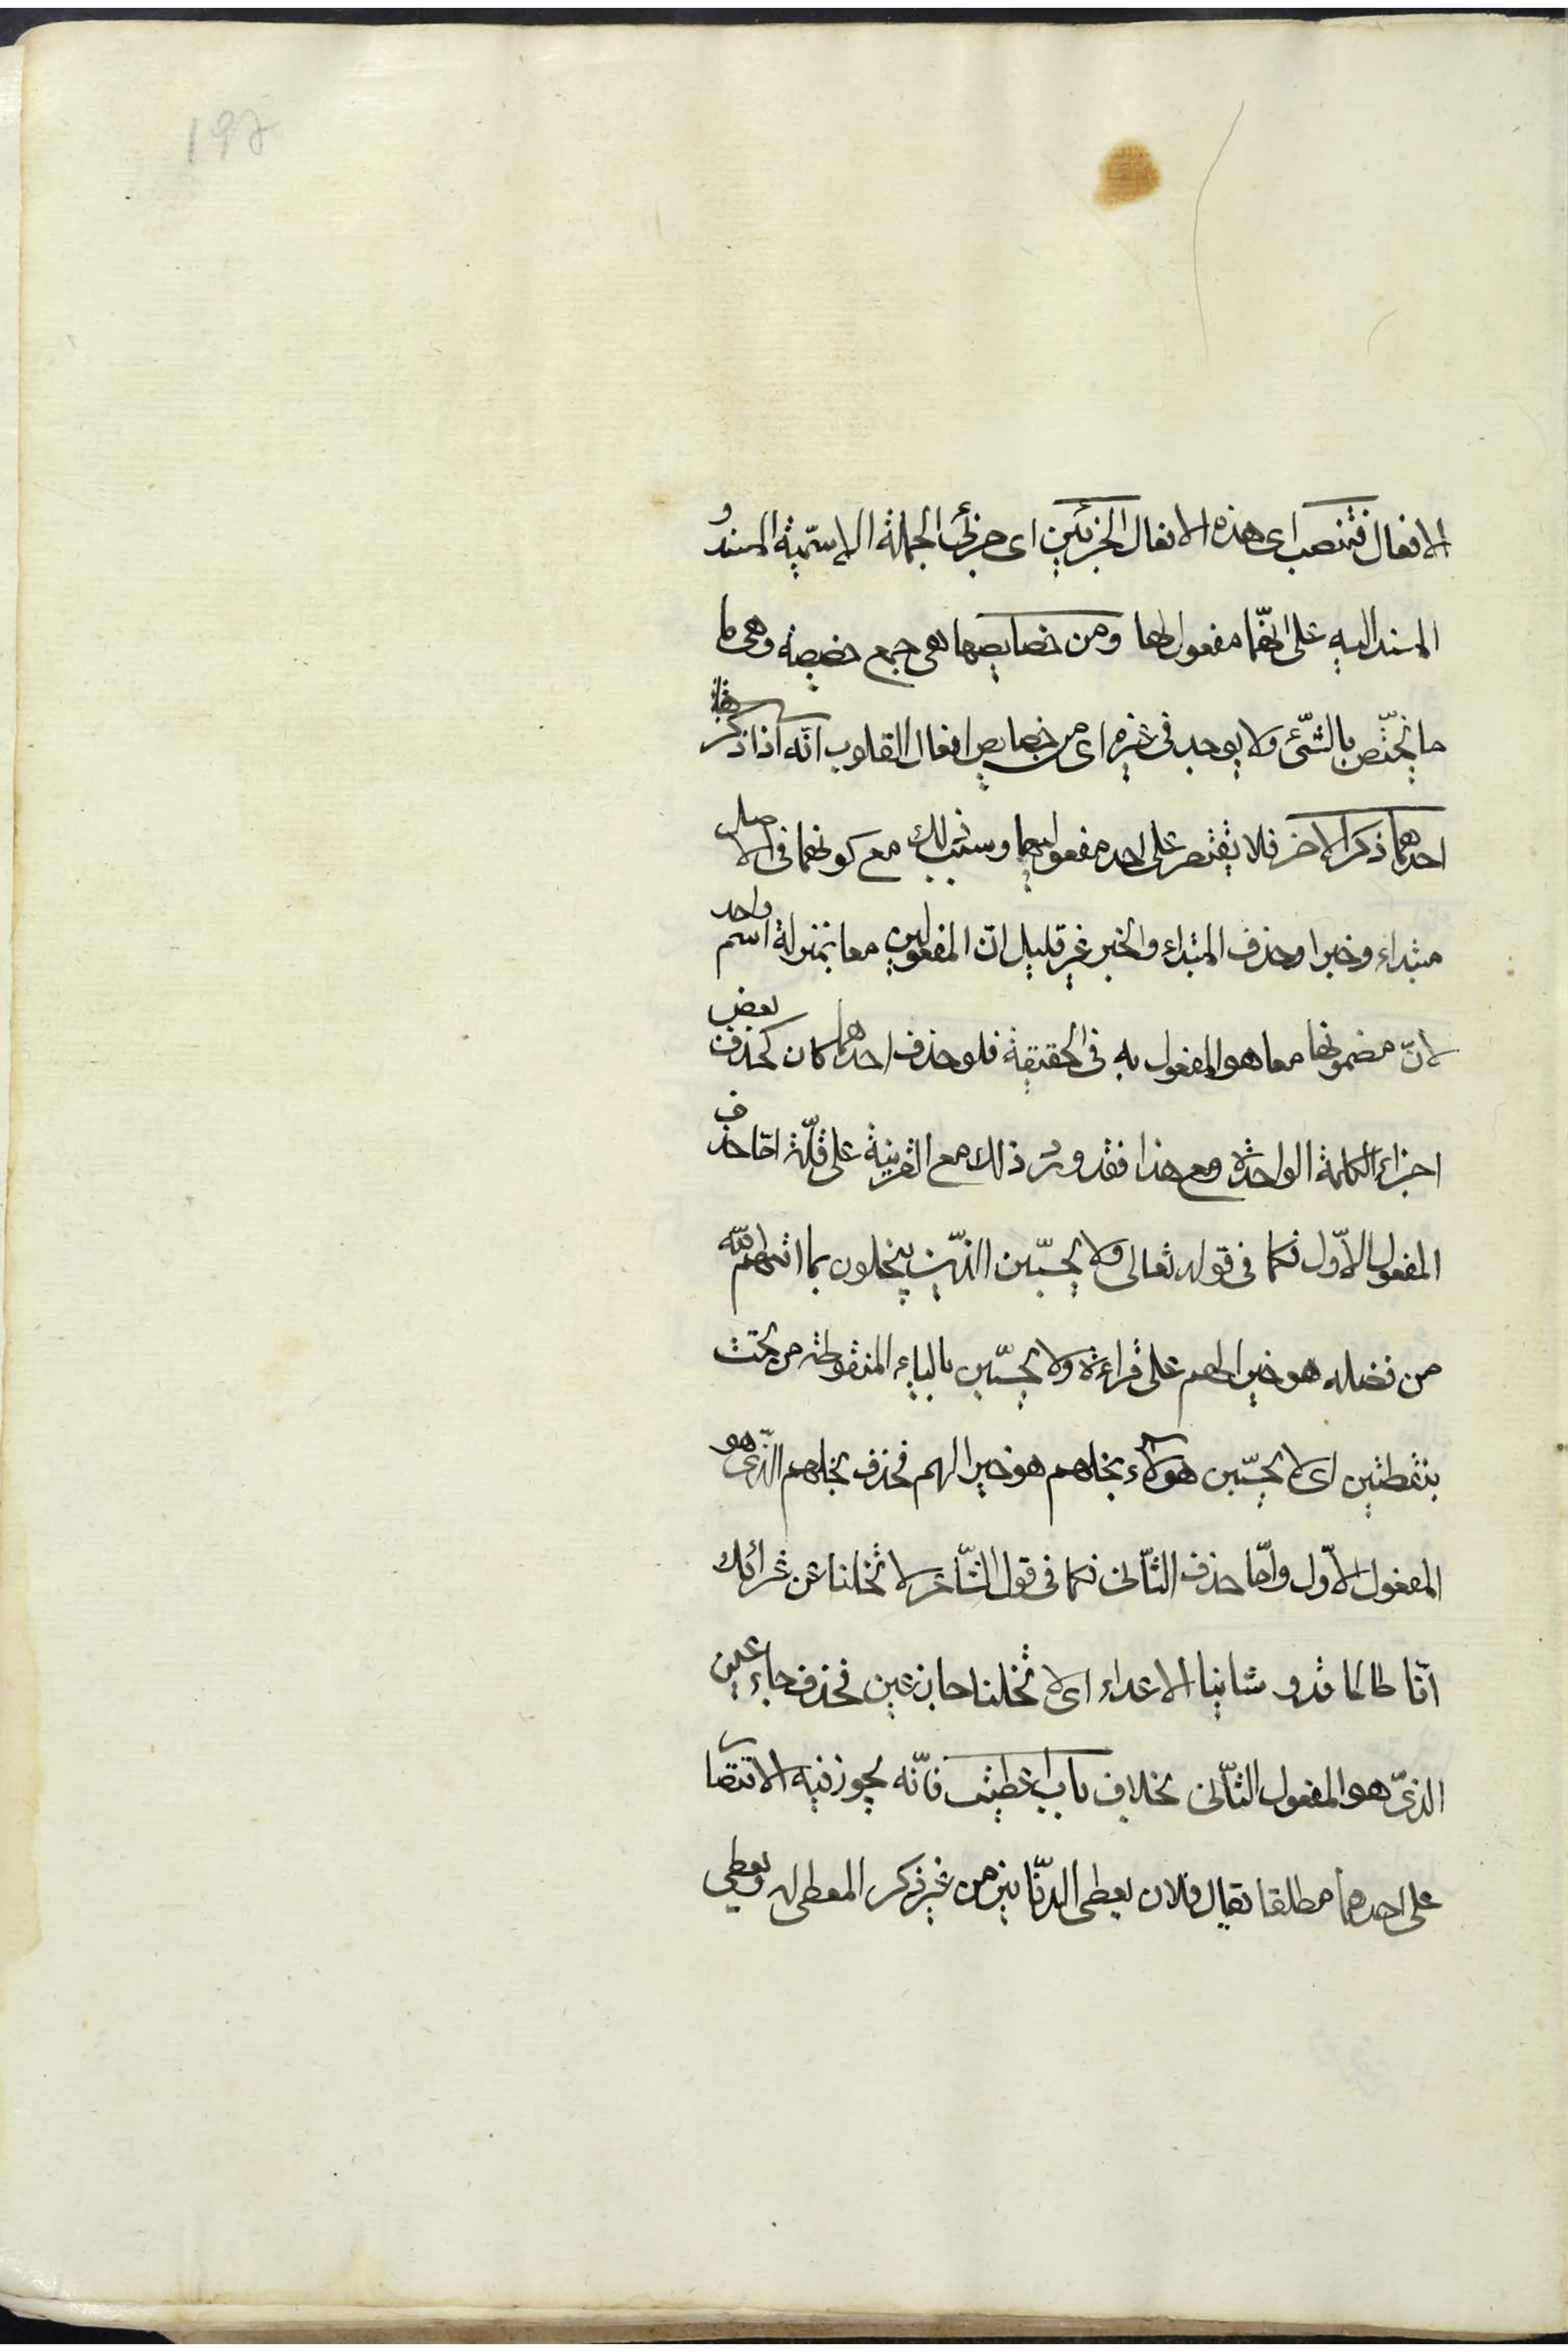 197
الافعال فتنصب اى هذه الافعال الجزئين اى جزئى الجملة الاسّمية المسند و
المسند اليه على انهّما مفعولا لها ومن خصايصها هى جمع خصيصة وهى ما
ما يختّص بالشّئ ولا يوجد فى غيره اى من خصايص افعال القلوب انّه اذا ذكر
احدهما ذكر الاخر فلا يقتصر على احد مفعوليهما وسبب ذلك مع كونهما فى الاصل
مبتداء وخبرا وحذف المبتداء والخبر غير قليل انّ المفعولين معا بمنزلة اسم واحد
لانّ مضمونهما معا هو المفعول به فى الحقيقة فلو حذف احدهما كان كحذف بعض
اجزاء الكلمة الواحدة ومع هذا فقد ورد ذلك مع القرينة على قلّة امّا حذف
المفعول الاّول فكما فى قوله تعالى ولا يحسّبن الذّين يبخلون بما اتيهم الله
من فضله هو خيرا لهم على قراءة ولا يحسّبن بالياء المنقوطة من تحت
بنقطتين اى لا يحسّبن هولاء بخلهم هو خيرا لهم فحذف بخلهم الذّى هو
المفعول الاّول وامّا حذف الثّانى فكما فى قول الشّاعر لا تخلنا عن غرائك
انّا طالما قد و شانيا الاعداء اى لا تخلنا جازعين فحذف جازعين
الذىّ هو المفعول الثّانى بخلاف باب اعطيت فانّه يجوز فيه الاقتصا
على احدهما مطلقا يقال فلان يعطى الدنّانير من غير ذكر المعطى له ويعطى